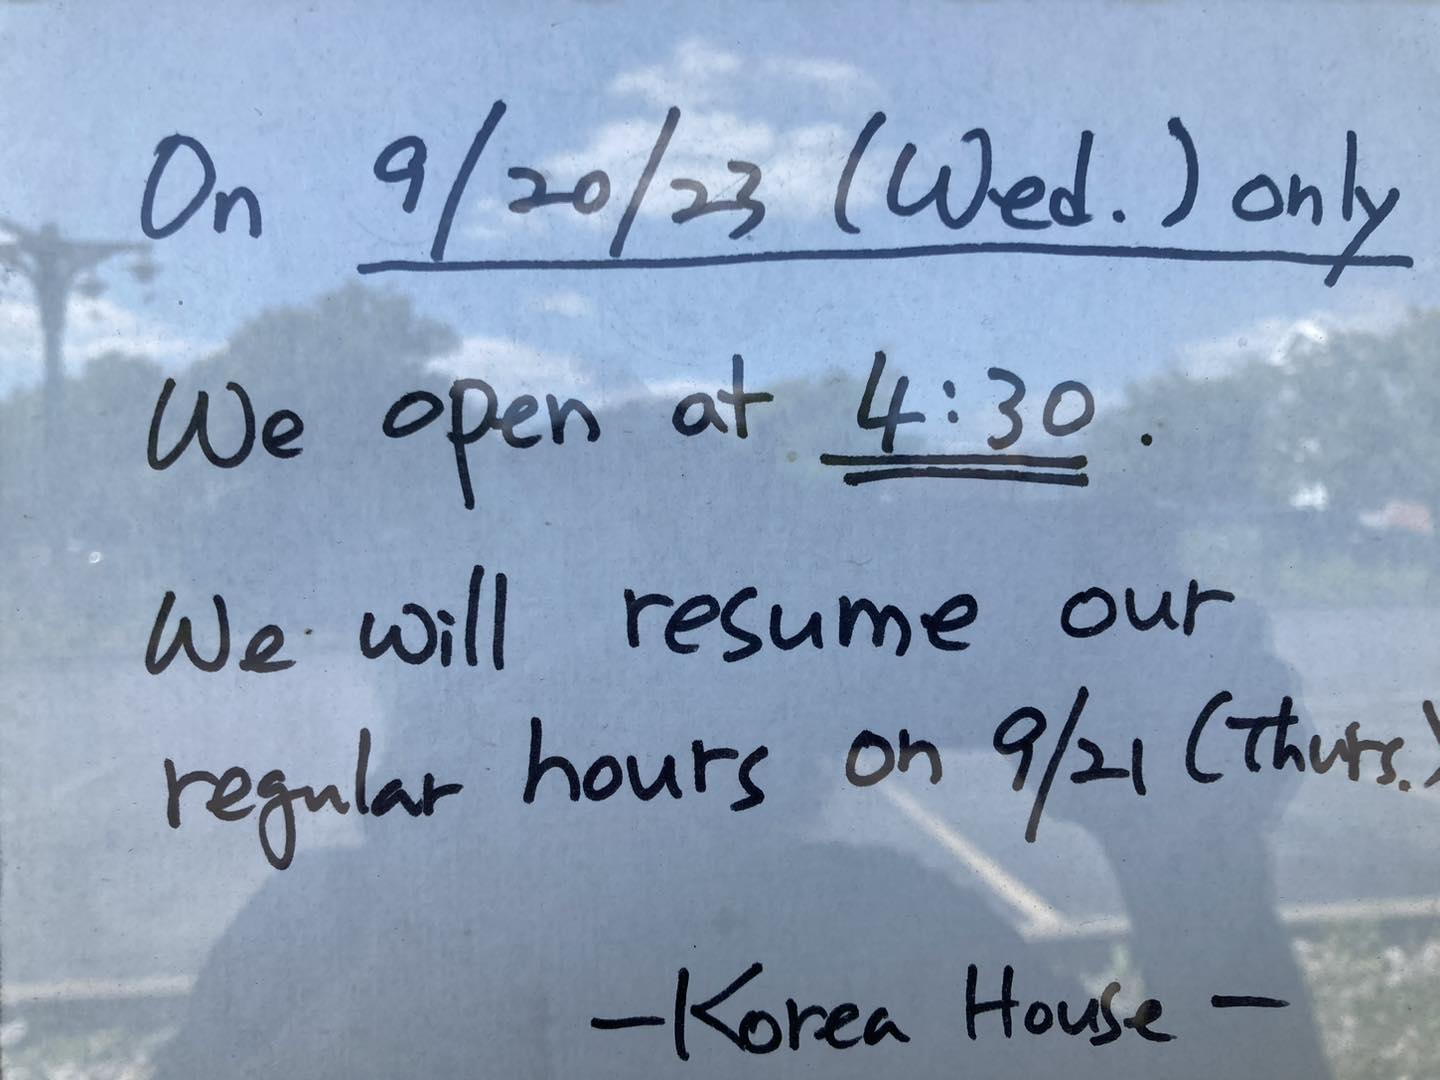 On 9/20/23 (Wed.) only
We open at 4:30.
We will resume our
regular hours on 9/21 (Thurs.)
- Korea House -